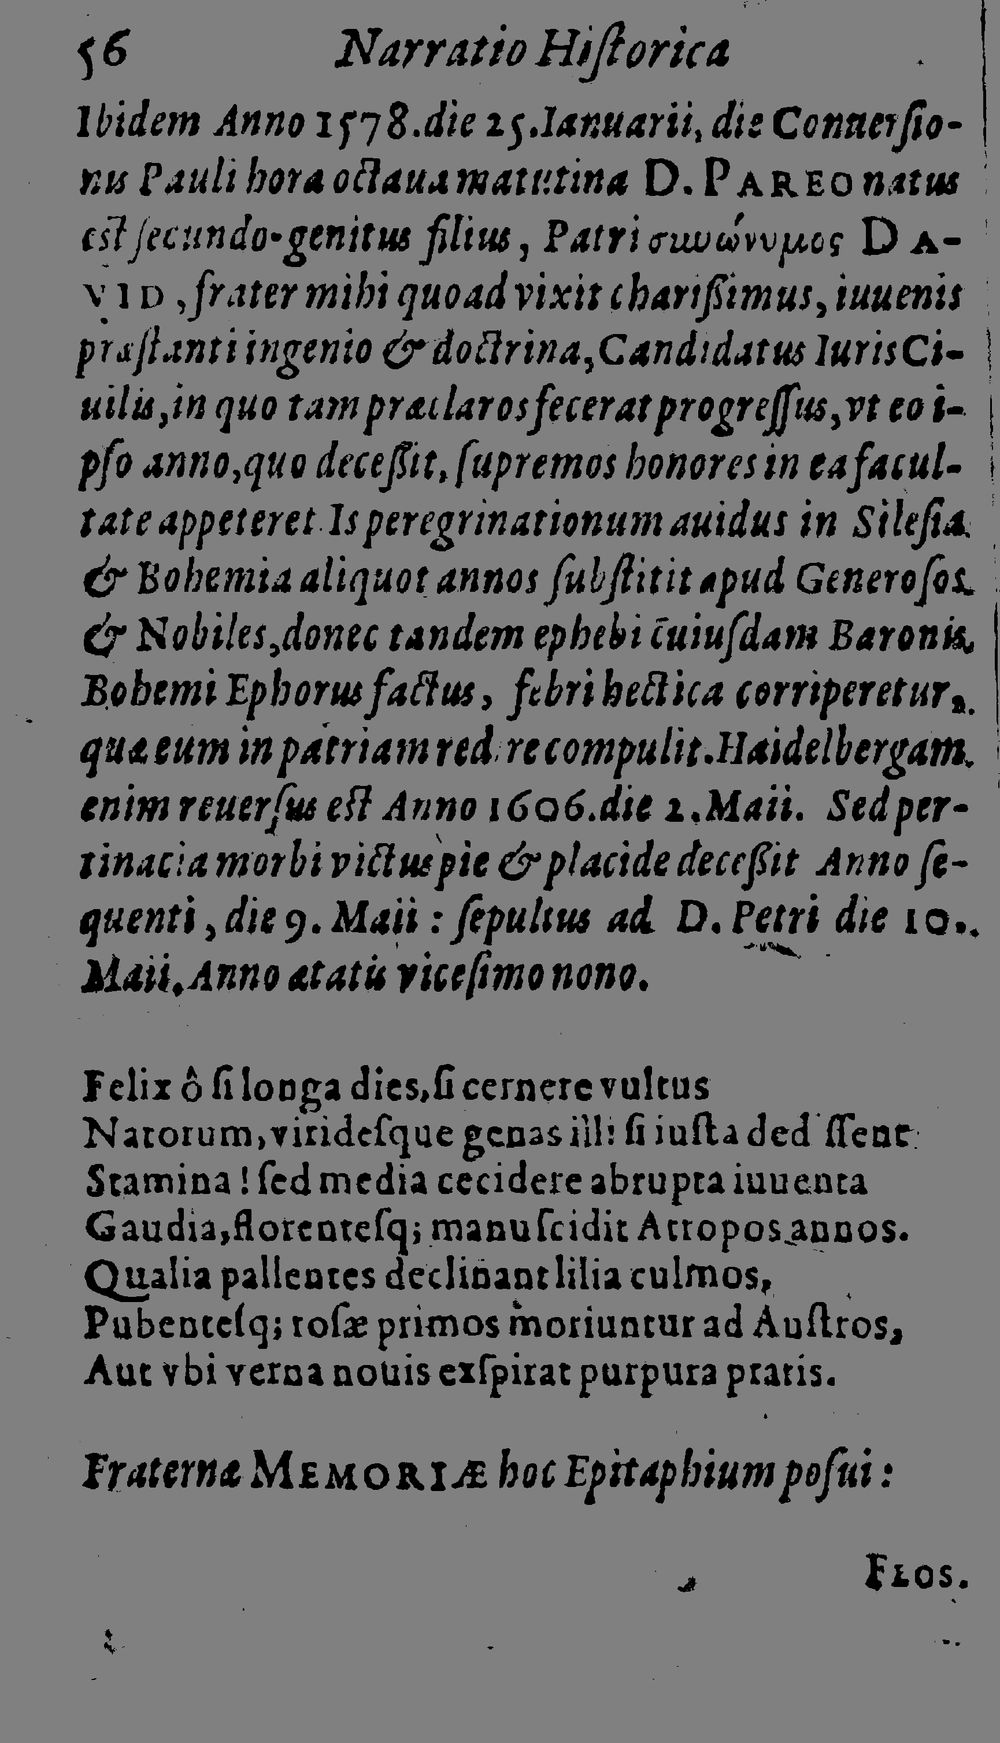 56 Narratio Hiſtorica
Ibidem Anno 1578. die 25. Ianuarii, die Conuerſio-
nis Pauli hora octaua matutina D. PAREO natus
eſt ſecundo-genitus filius, Patri συνώνυμος DA-
VID, frater mihi quoad vixit chariſſimus, iuuenis
præſtanti ingenio & doctrina, Candidatus Iuris Ci-
uilis, in quo tam præclaros fecerat progreſſus, vt eo i-
pſo anno, quo deceſſit, ſupremos honores in ea facul-
tate appeteret. Is peregrinationum auidus in Sileſia
& Bohemia aliquot annos ſubſtitit apud Generoſos
& Nobiles, donec tandem ephebi cuiuſdam Baronis
Bohemi Ephorus factus, febri hectica corriperetur,
quæ eum in patriam redire compulit. Haidelbergam
enim reuerſus eſt Anno 1606. die 2. Maii. Sed per-
tinacia morbi victus pie & placide deceſſit Anno ſe-
quenti, die 9. Maii: ſepultus ad D. Petri die 10.
Maii. Anno ætatis viceſimo nono.
Felix ô ſi longa dies, ſi cernere vultus
Natorum, virideſque genas illi ſi iuſta dediſſent
Stamina! ſed media cecidere abrupta iuuenta
Gaudia, florenteſq; manu ſcidit Atropos annos.
Qualia pallentes declinant lilia culmos,
Pubenteſq; roſæ primos moriuntur ad Auſtros,
Aut vbi verna nouis exſpirat purpura pratis.
Fraternæ MEMORIÆ hoc Epitaphium poſui:
FLOS.